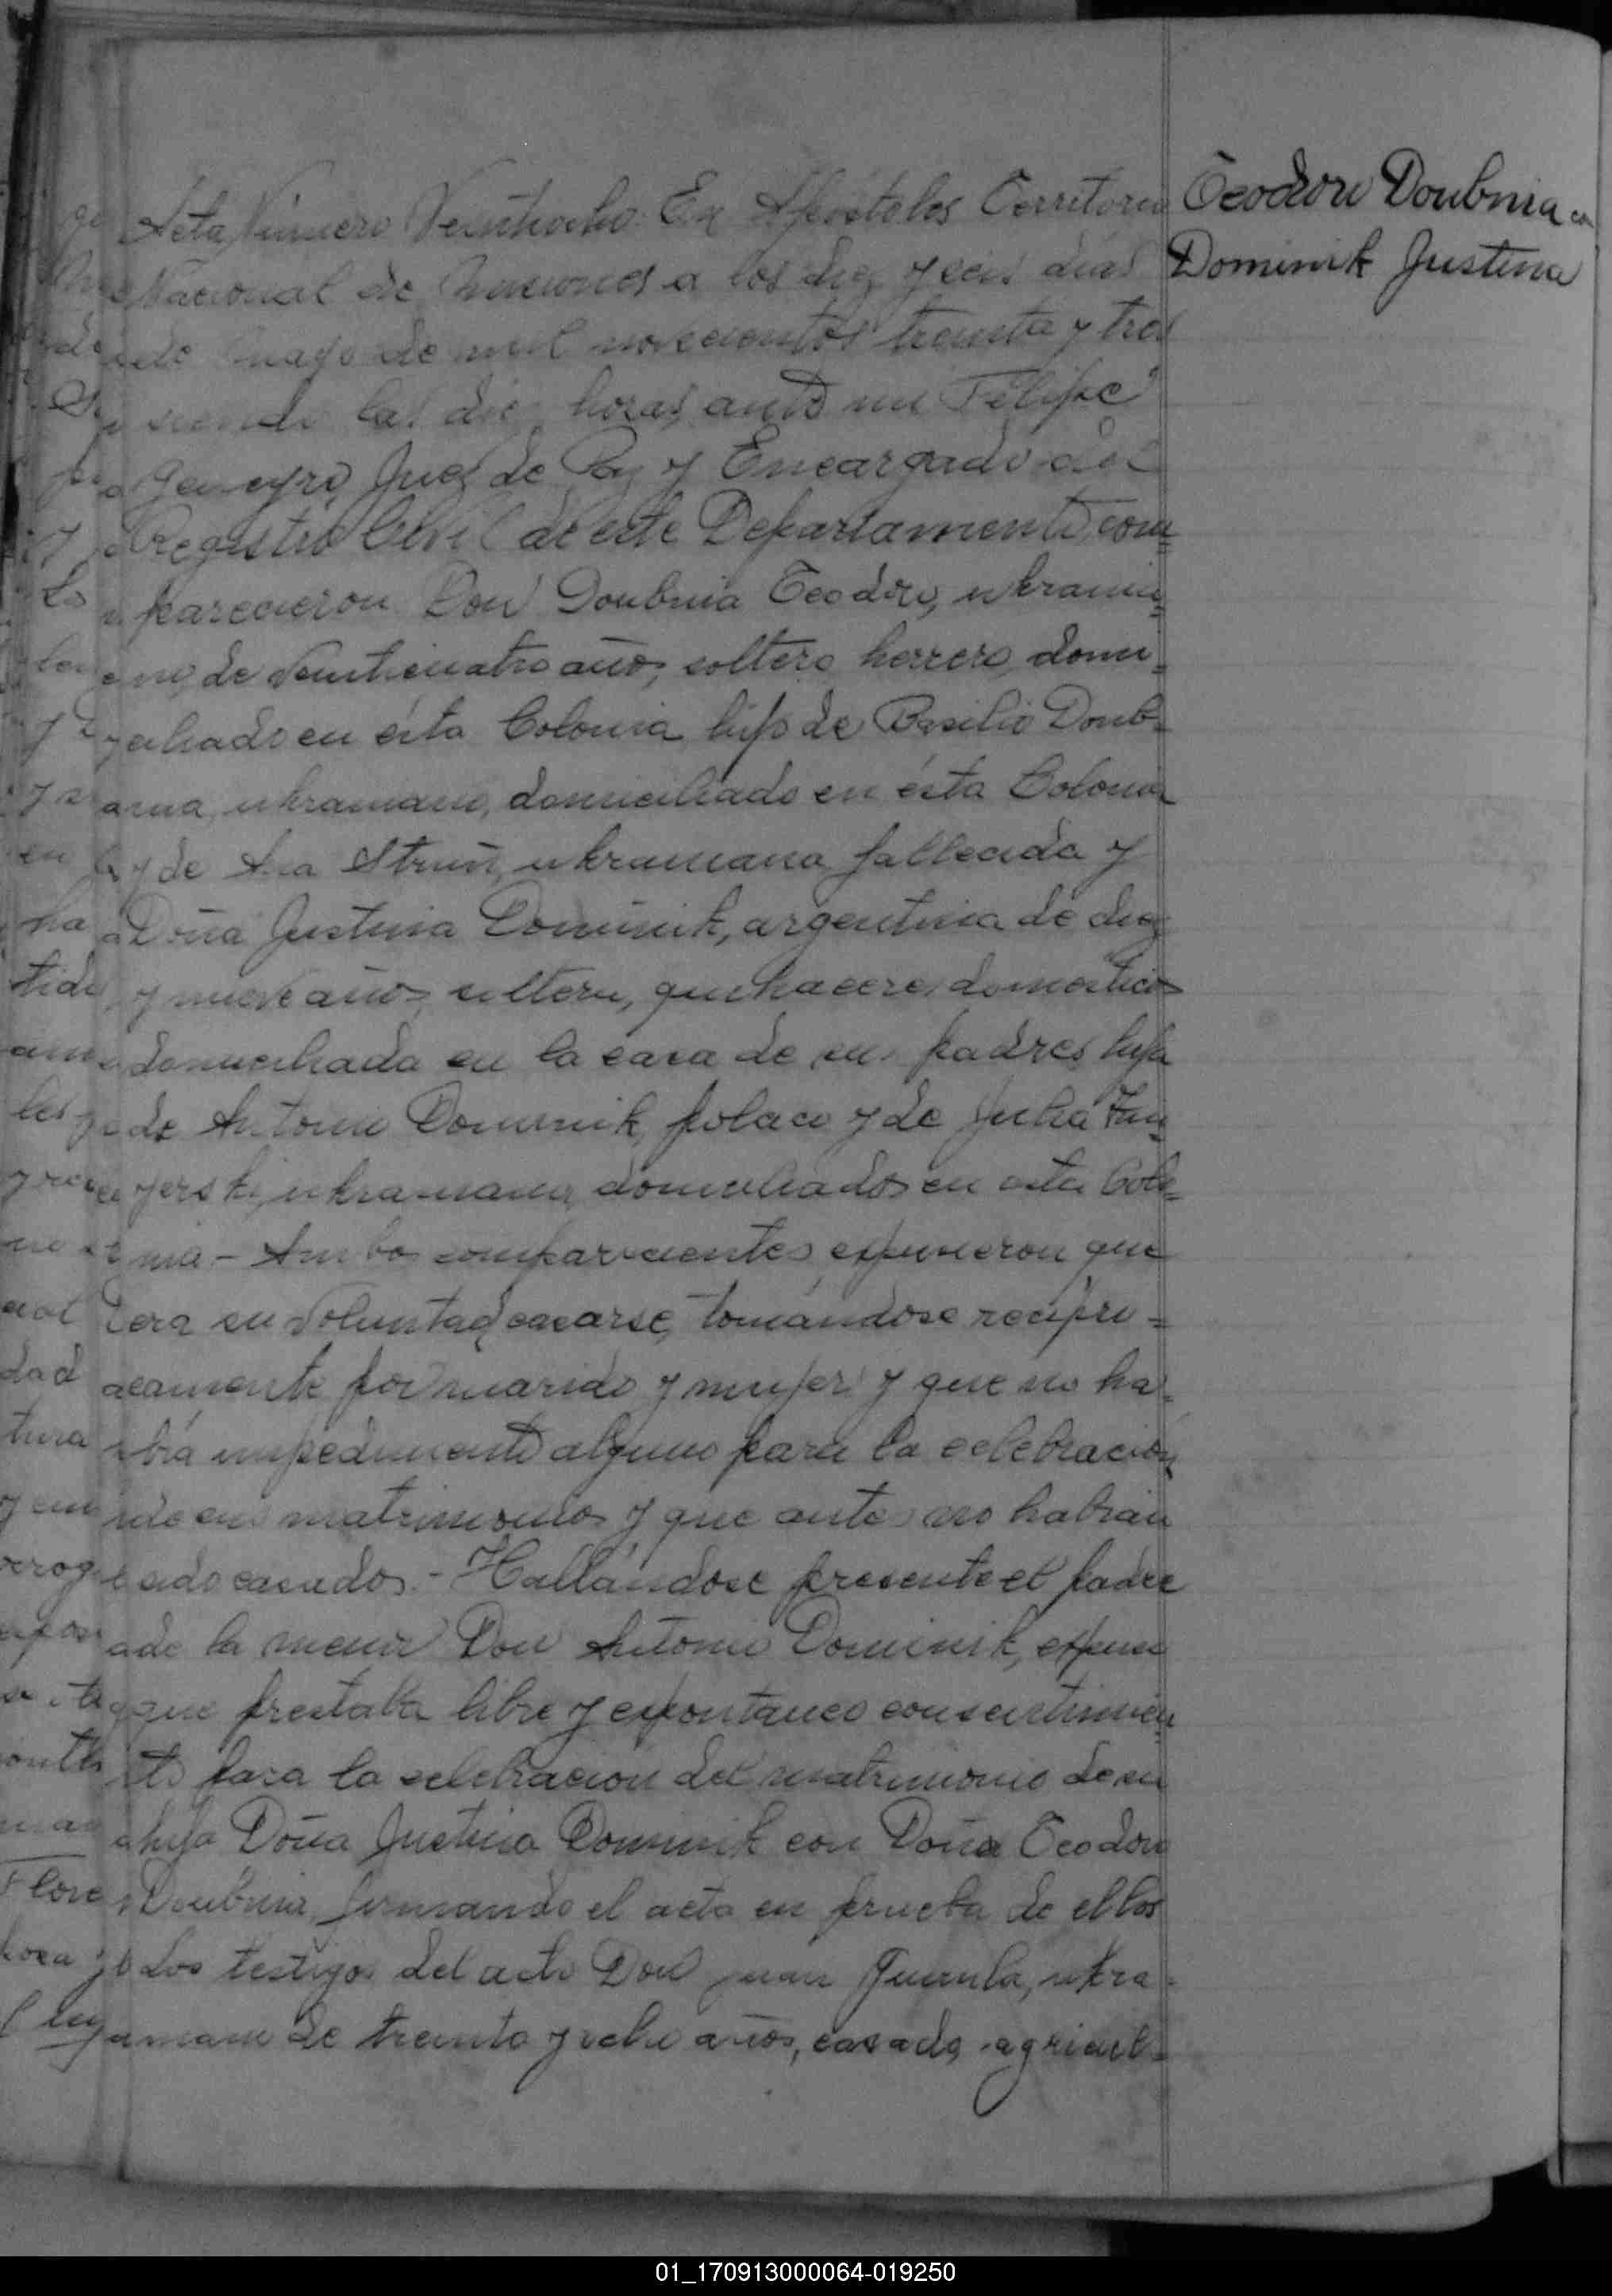 Teodoro Doubnia con
Dominik Justina
Acta Número Veintiocho. En Apóstoles Territorio
Nacional de Misiones a los diez y seis dias
de Mayo de mil novecientos treinta y tres
siendo las diez horas, ante mi Felipe
Juez de Paz y Encargado del
Registro Civil de este Departamento, com=
parecieron Don Doubnia Teodoro, ukrania=
no, de veinticuatro años, soltero, herrero, domi=
ciliado en ésta Colonia, hijo de Basilio Doub=
nia, ukraniano, domiciliado en ésta Colonia
y de Ana ukraniana fallecida y
Doña Justina Dominik, argentina de diez
y nueve años, soltera, quehaceres domésticos
domiciliada en la casa de sus padres, hija
de Antonio Dominik, polaco y de Julia
ukraniana, domiciliados en esta Colo=
nia - Ambos comparecientes expusieron que
era su voluntad casarse, tomándose recipro=
camente por marido y mujer y que no ha=
bia impedimento alguno para la celebración
de su matrimonio y que antes no habian
sido casados. - Hallándose presente el padre
de la menor Don Antonio Dominik, expuso
que prestaba libre y espontaneo consentimien
to para la celebracion del matrimonio de su
hija Doña Justina Dominik con Doña Teodoro
Doubnia, firmando el acta en prueba de ellos
Los testigos del acto Don Juan ukra=
niano de treinta y ocho años, casado, agricul=
01_170913000064-019250